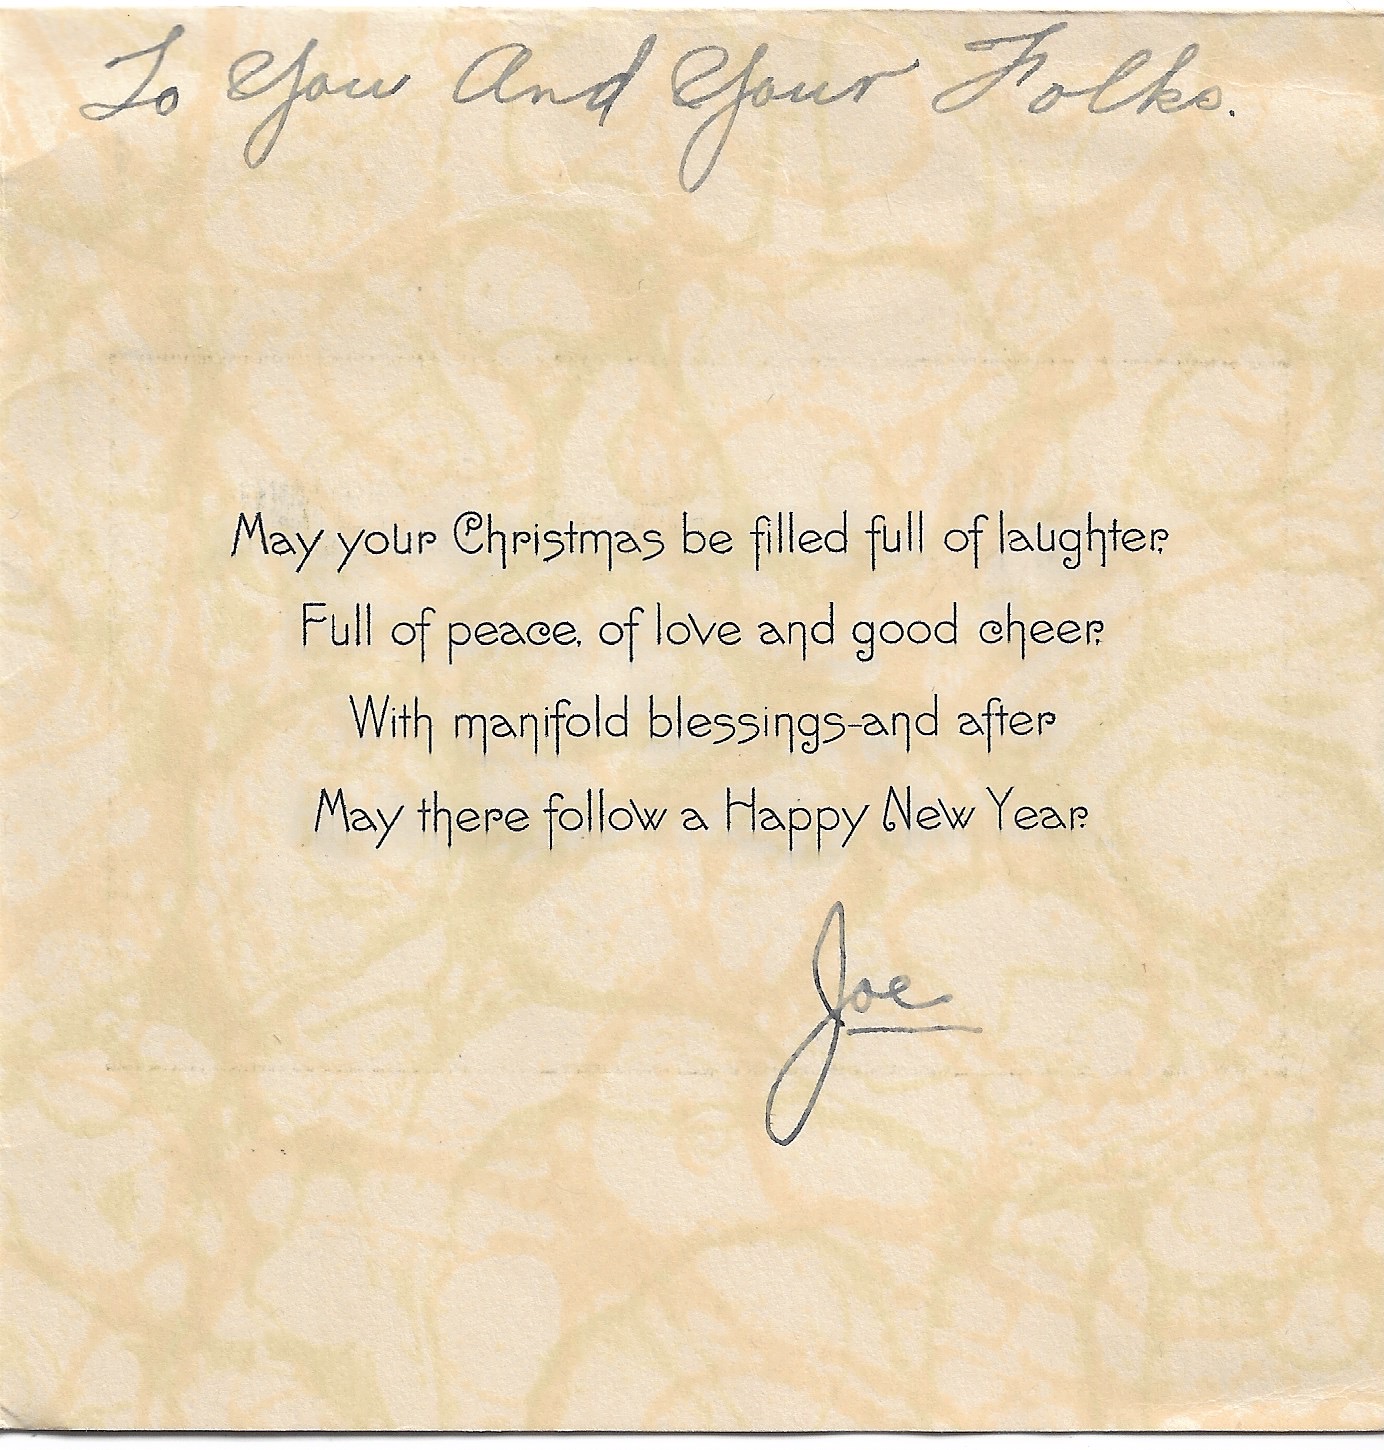 To You And Your Folks.
May your Christmas be filled full of laughter,
Full of peace, of love and good cheer,
With manifold blessings-and after
May there follow a Happy New Year.
Joe